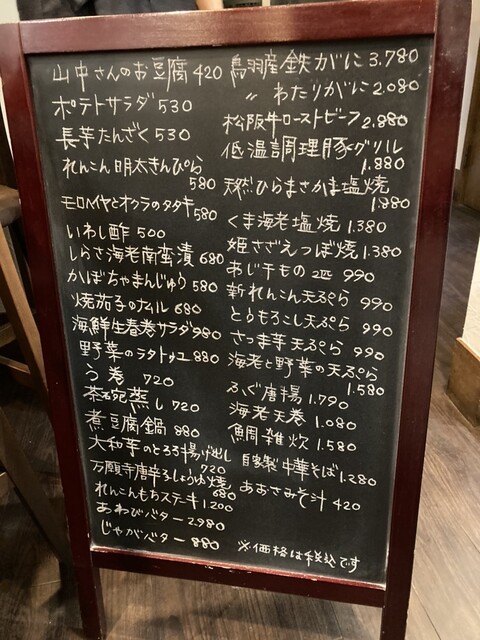 山中さんのお豆腐 420
ポテトサラダ 530
長芋たんざく 530
れんこん明太きんぴら
580
モロヘイヤとオクラのタタキ 580
いわし酢 500
しらさ海老南蛮漬 680
かぼちゃまんじゅう 580
焼茄子のナムル 680
海鮮生春巻サラダ 980
野菜のラタトゥユ 880
う巻 720
茶碗蒸し 720
煮豆腐鍋 880
大和芋のとろろ揚げ出し
720
万願寺唐辛子しょうゆ焼
680
れんこんもちステーキ 1.200
あわびバター 2.980
じゃがバター 880
鳥羽産鉄がに 3.780
〃 わたりがに 2.080
松阪牛ローストビーフ 2.880
低温調理豚グリル
1.880
天然ひらまさかま塩焼
1.880
くま海老塩焼 1.380
姫さざえつぼ焼 1.380
あじ干もの 2匹 990
新れんこん天ぷら 990
とうもろこし天ぷら 990
さつま芋天ぷら 990
海老と野菜の天ぷら
1.580
ふぐ唐揚 1.790
海老天巻 1.080
鯛雑炊 1.580
自家製中華そば 1.280
あおさみそ汁 420
※価格は税込です